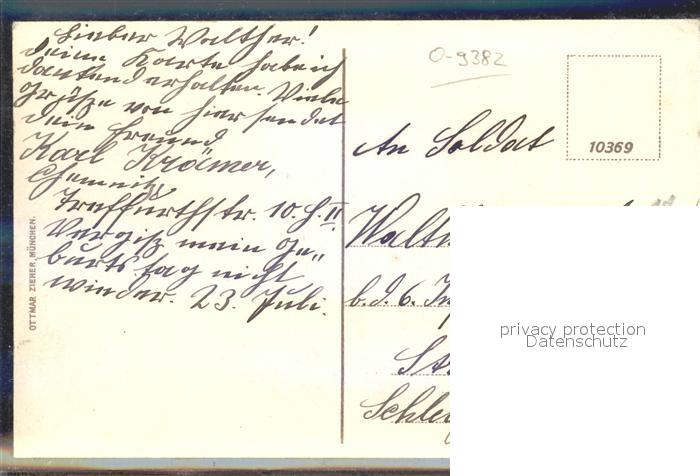 Lieber Walther!
deine Karte habe ich
dankend erhalten. Viele
Grüße von hier sendet
dein Freund
Karl Krämer,
Chemnitz
Treffurthstr. 10. H. II
Vergiß mein Ge„
burtstag nicht
wieder. 23. Juli.
OTTMAR ZIEHER, MÜNCHEN.
0-9382
10369
An Soldat
Walth
b. d. 6. In
St
Schle
privacy protection
Datenschutz